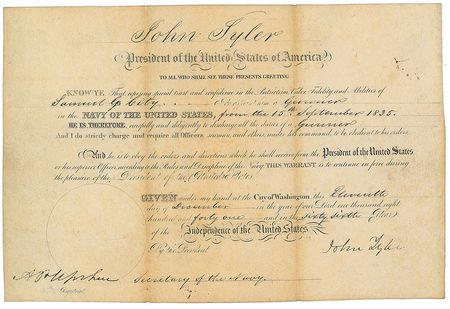 John Tyler
President of the United States of America
TO ALL WHO SHALL SEE THESE PRESENTS GREETING
KNOW YE That reposing special trust and confidence in the Patriotism, Valor, Fidelity and Abilities of
Samuel G. City I appoint him a Gunner
in the NAVY OF THE UNITED STATES, from the 15th September 1835.
HE IS THEREFORE, carefully and diligently to discharge all the duties of a Gunner
And I do strictly charge and require all Officers, seamen, and others, under his command, to be obedient to his orders.
AND he is to obey the orders and directions which he shall receive from the PRESIDENT OF THE UNITED STATES
or his superior Officer, according to the Rules and Discipline of the Navy. THIS WARRANT is to continue in force during
the pleasure of the President of the United States
GIVEN under my hand at the City of Washington, this Eleventh
day of December in the year of our Lord one thousand eight
hundred and forty one and in the sixty sixth Year
of the Independence of the United States.
By the President
John Tyler
A. P. Upshur Secretary of the Navy.
Registered